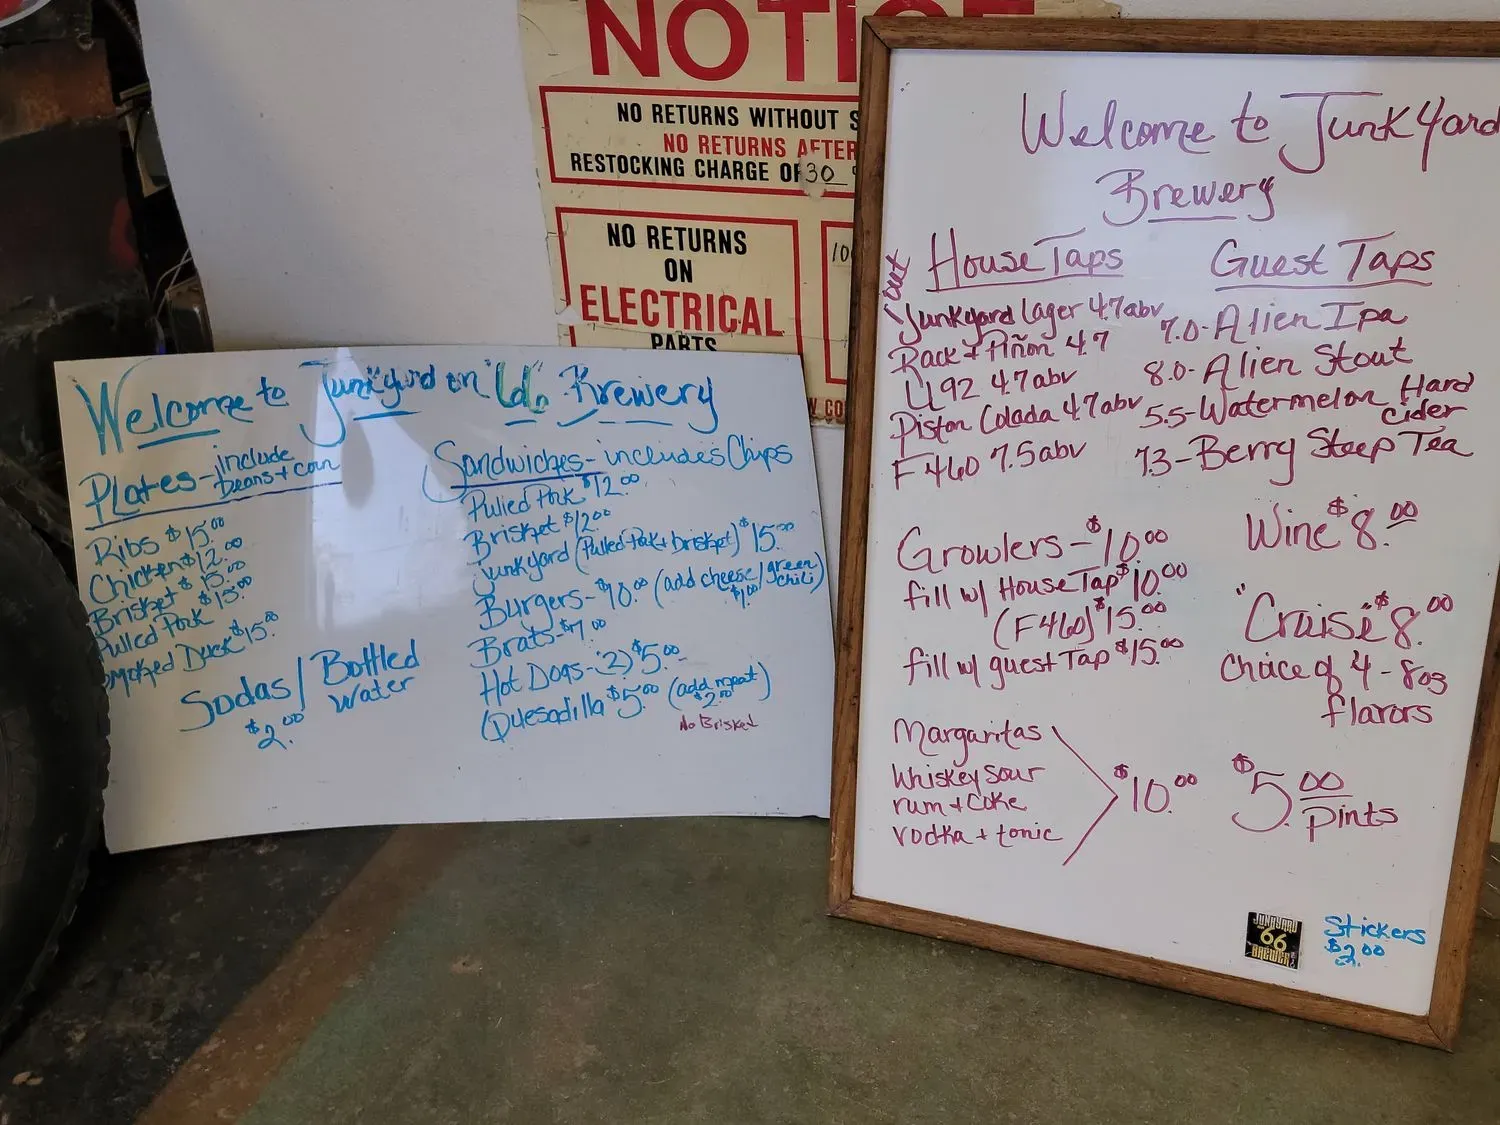 NOTICE
NO RETURNS WITHOUT
NO RETURNS AFTER
RESTOCKING CHARGE OF 30
NO RETURNS
ON
ELECTRICAL
PARTS
Welcome to Junkyard on "66" Brewery
Plates - include
beans + corn
Ribs $15.00
Chicken $12.00
Brisket $15.00
Pulled Pork $15.00
Smoked Duck $15.00
Sodas / Bottled
Water
$2.00
Sandwiches - includes Chips
Pulled Pork $12.00
Brisket $12.00
Junkyard (Pulled Pork + brisket) $15.00
Burgers - $10.00 (add cheese / green chili) $1.00
Brats - $7.00
Hot Dogs - (2) $5.00
Quesadilla $5.00 (add meat) $2.00
No Brisked
Welcome to Junkyard
Brewery
House Taps
out
Junkyard Lager 4.7abv
Rack + Piñon 4.7
LL92 4.7abv
Piston Colada 4.7abv
F460 7.5abv
Guest Taps
7.0 - Alien Ipa
8.0 - Alien Stout
5.5 - Watermelon Hard
Cider
7.3 - Berry Steep Tea
Growlers - $10.00
fill w/ House Tap $10.00
(F460) $15.00
fill w/ guest Tap $15.00
Wine $8.00
"Cruise" $8.00
Choice of 4 - 8oz
flavors
Margaritas
Whiskey Sour
rum + Coke
vodka + tonic
$10.00
$5.00
pints
JUNKYARD
66
BREWERY
Stickers
$2.00